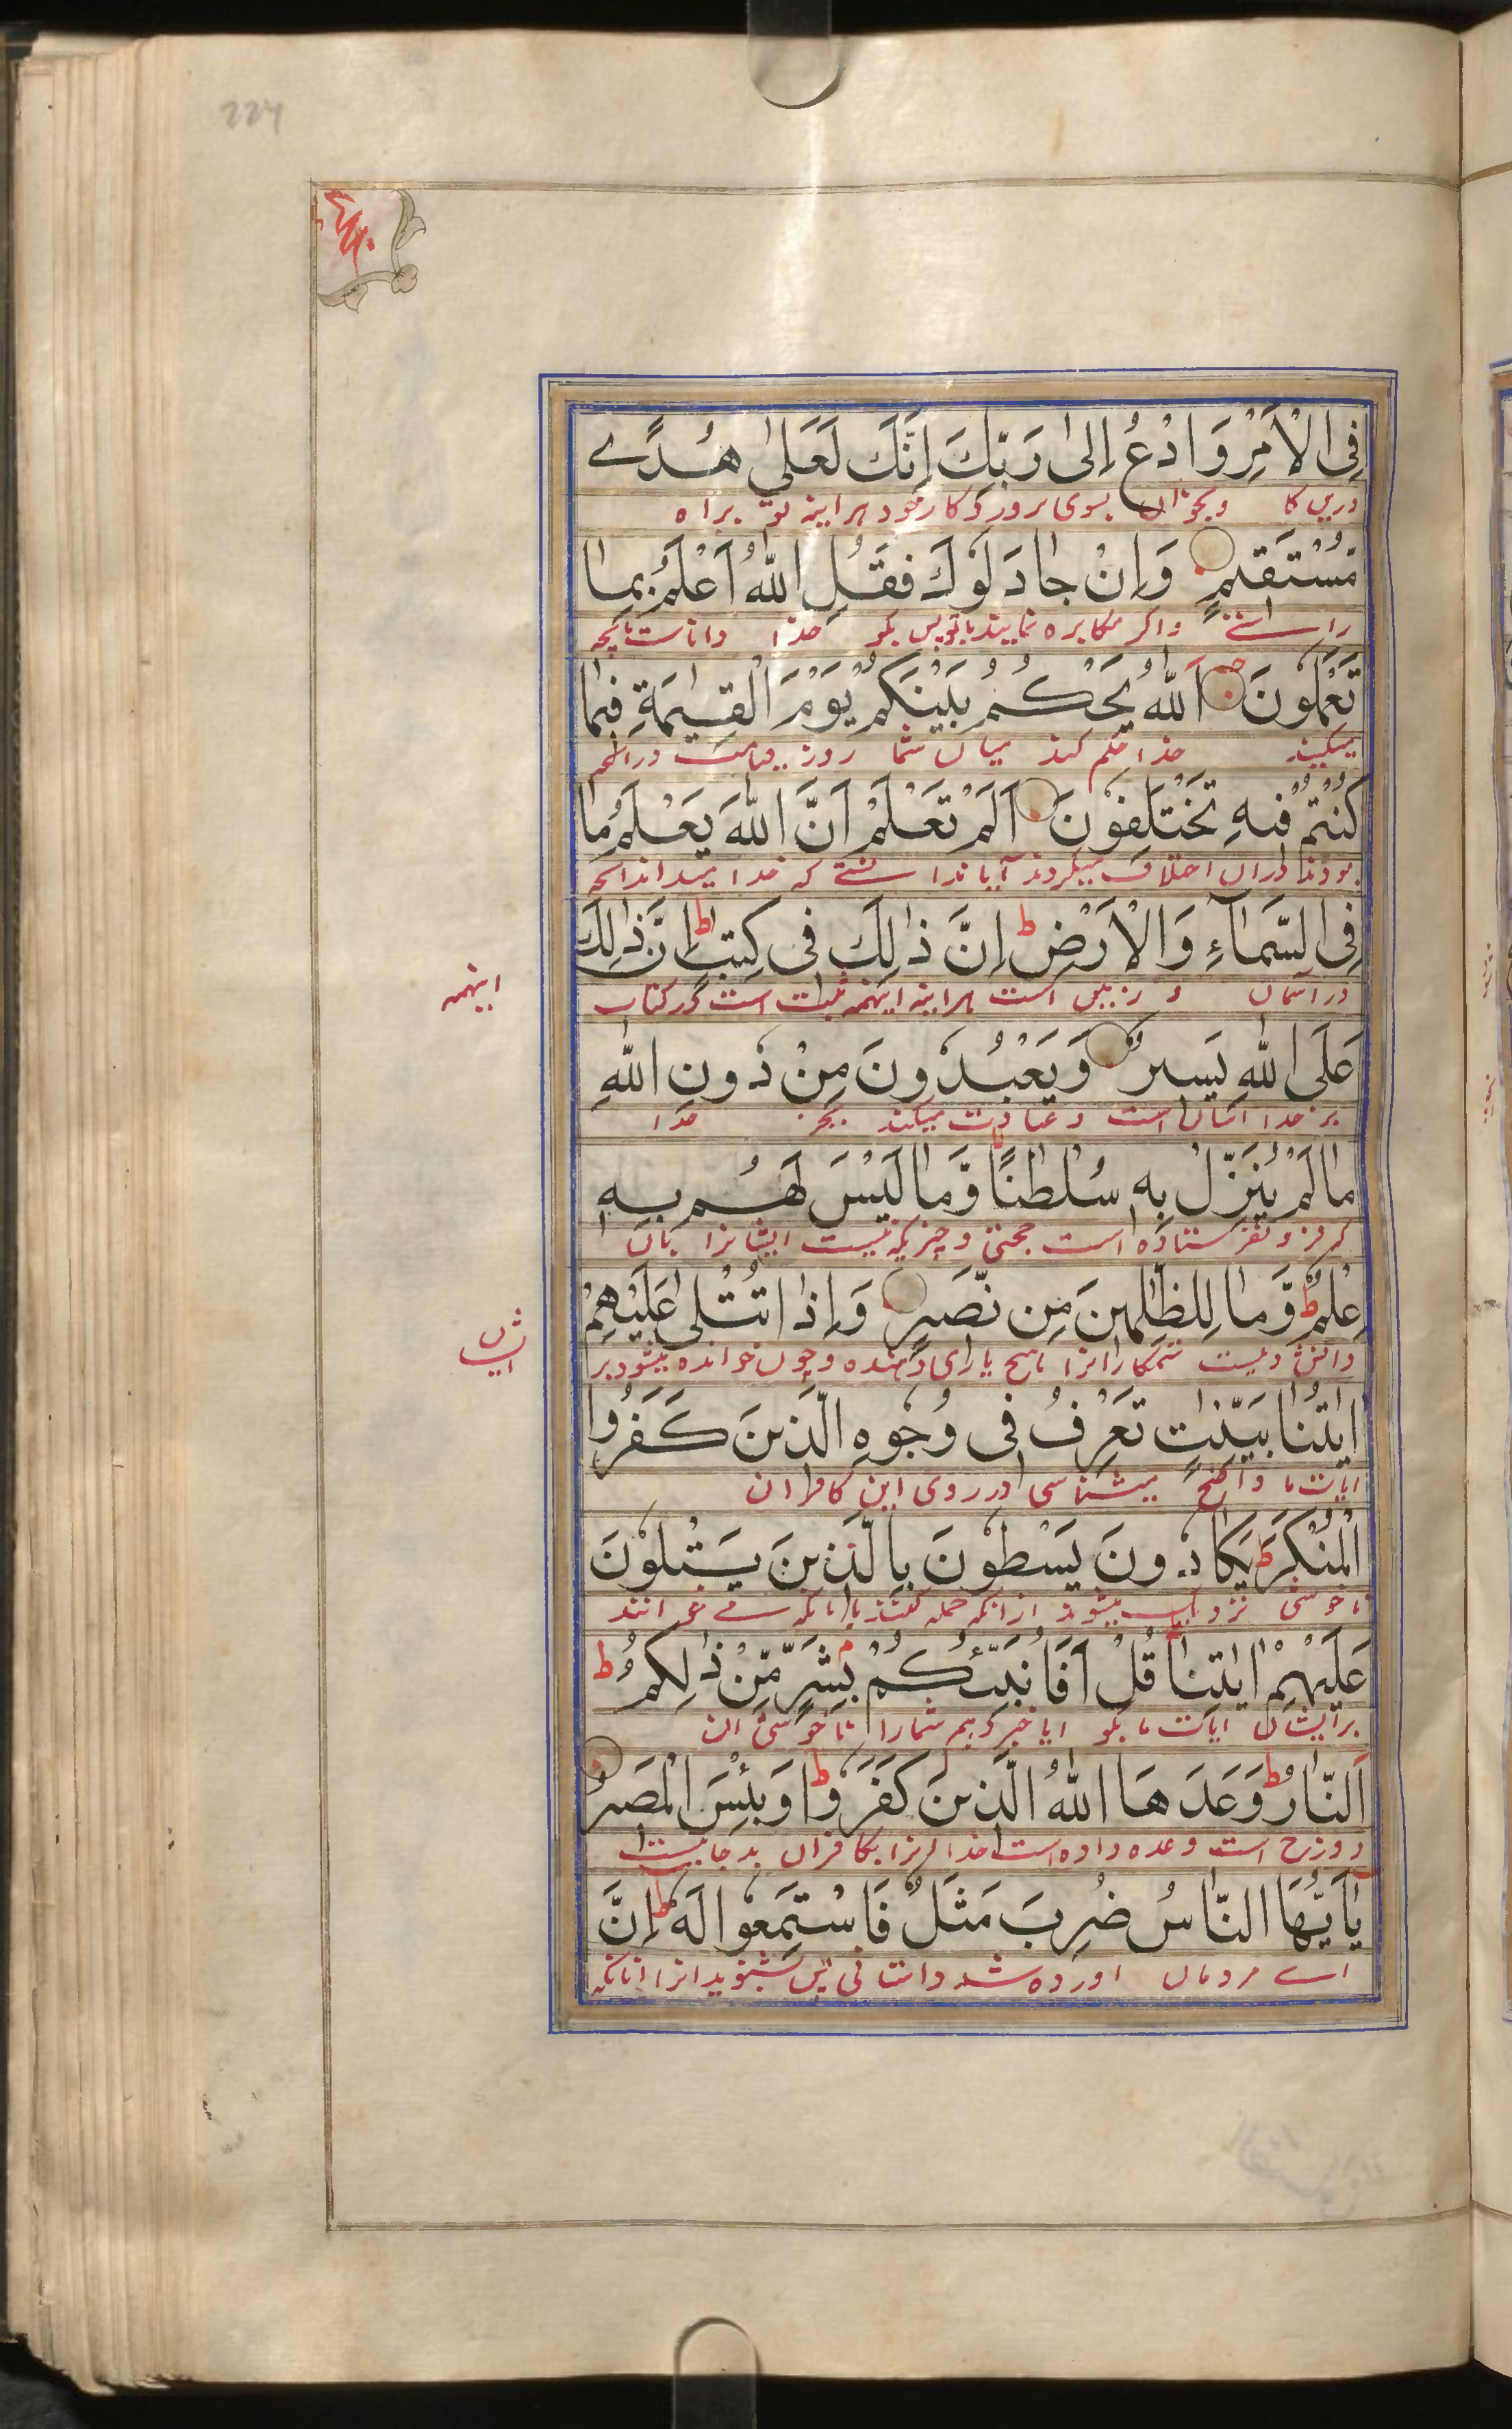 224
فِی الْاَمْرِ وَادْعُ اِلىٰ رَبِّكَ اِنَّكَ لَعَلىٰ هُدًے
درین کا وبخوان بسوی پروردکار خود هرآینه تو براه
مُّسْتَقِیْمٍ وَاِنْ جَادَلُوْكَ فَقُلِ اللّٰهُ اَعْلَمُ بِمَا
راستے واکر مکابره نمایند باتو پس بکو خدا داناست بانچه
تَعْمَلُوْنَ اَللّٰهُ یَحْكُمُ بَیْنَكُمْ یَوْمَ الْقِیٰمَةِ فِیْمَا
میکنید خدا حکم کند میان شما روز قیامت درانچه
كُنْتُمْ فِیْهِ تَخْتَلِفُوْنَ اَلَمْ تَعْلَمْ اَنَّ اللّٰهَ یَعْلَمُ مَا
بودند دران اختلاف میکردند آیا ندانستے که خدا میداند انچه
فِی السَّمَآءِ وَالْاَرْضِ ط اِنَّ ذٰلِكَ فِی كِتٰبٍ ط اِنَّ ذٰلِكَ
در آسمان و زمین است هرآینه اینهمه ثبت است در کتاب
اینهمه
عَلَی اللّٰهِ یَسِیْرٌ وَیَعْبُدُوْنَ مِنْ دُوْنِ اللّٰهِ
بر خدا آسان است و عبادت میکنند بجز خدا
مَا لَمْ یُنَزِّلْ بِهٖ سُلْطٰنًا وَّمَا لَیْسَ لَهُمْ بِهٖ
که فرو نفرستاده است حجتی وچیزیکه نیست ایشانرا بآن
عِلْمٌ ط وَّمَا لِلظّٰلِمِیْنَ مِن نَّصِیْرٍ وَاِذَا تُتْلىٰ عَلَیْهِمْ
دانش ونیست ستمکارانرا هیچ یاری دهنده وچون خوانده میشود بر
ایشان
اٰیٰتُنَا بَیِّنٰتٍ تَعْرِفُ فِی وُجُوْهِ الَّذِیْنَ كَفَرُوا
ایات ما واضح میشناسی در روی این کافران
الْمُنْكَرَ ط یَكَادُوْنَ یَسْطُوْنَ بِالَّذِیْنَ یَتْلُوْنَ
ناخوشی نزدیک میشوند ازانکه حمله کنند بانانکه مے خوانند
عَلَیْهِمْ اٰیٰتِنَا ط قُلْ اَفَاُنَبِّئُكُمْ بِشَرٍّ مِّنْ ذٰلِكُمْ ط
برایشان ایات ما بکو ایا خبر دهم شمارا ناخوشی ان
اَلنَّارُ ط وَعَدَهَا اللّٰهُ الَّذِیْنَ كَفَرُوْا ط وَبِئْسَ الْمَصِیْرُ
دوزخ است وعده داده است خدا انرا بکافران بد جاییست
یٰاَیُّهَا النَّاسُ ضُرِبَ مَثَلٌ فَاسْتَمِعُوْا لَهٗ ط اِنَّ
اے مردمان اورده شد داستانی پس بشنوید انرا انانکه